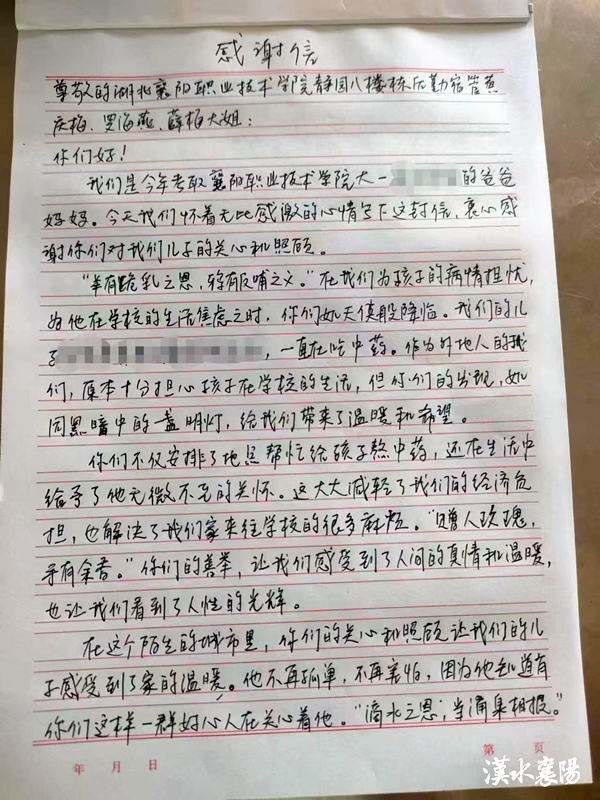 感谢信
尊敬的湖北襄阳职业技术学院静园八楼栋后勤宿管
庆梅、罗海燕、薛柏大姐：
你们好！
我们是今年考取襄阳职业技术学院大一的爸爸
妈妈。今天我们怀着无比感激的心情写下这封信，衷心感
谢你们对我们儿子的关心和照顾。
“羊有跪乳之恩，鸦有反哺之义。”在我们为孩子的病情担忧，
为他在学校的生活焦虑之时，你们如天使般降临。我们的儿
子，一直在吃中药。作为外地人的我
们，原本十分担心孩子在学校的生活，但你们的出现，如
同黑暗中的一盏明灯，给我们带来了温暖和希望。
你们不仅安排了地点帮忙给孩子熬中药，还在生活中
给予了他无微不至的关怀。这大大减轻了我们的经济负
担，也解决了我们家来往学校的很多麻烦。“赠人玫瑰，
手有余香。”你们的善举，让我们感受到了人间的真情和温暖，
也让我们看到了人性的光辉。
在这个陌生的城市里，你们的关心和照顾让我们的儿
子感受到了家的温暖。他不再孤单，不再害怕，因为他知道有
你们这样一群好心人在关心着他。“滴水之恩，当涌泉相报。”
年 月 日
第 页
漢水襄陽